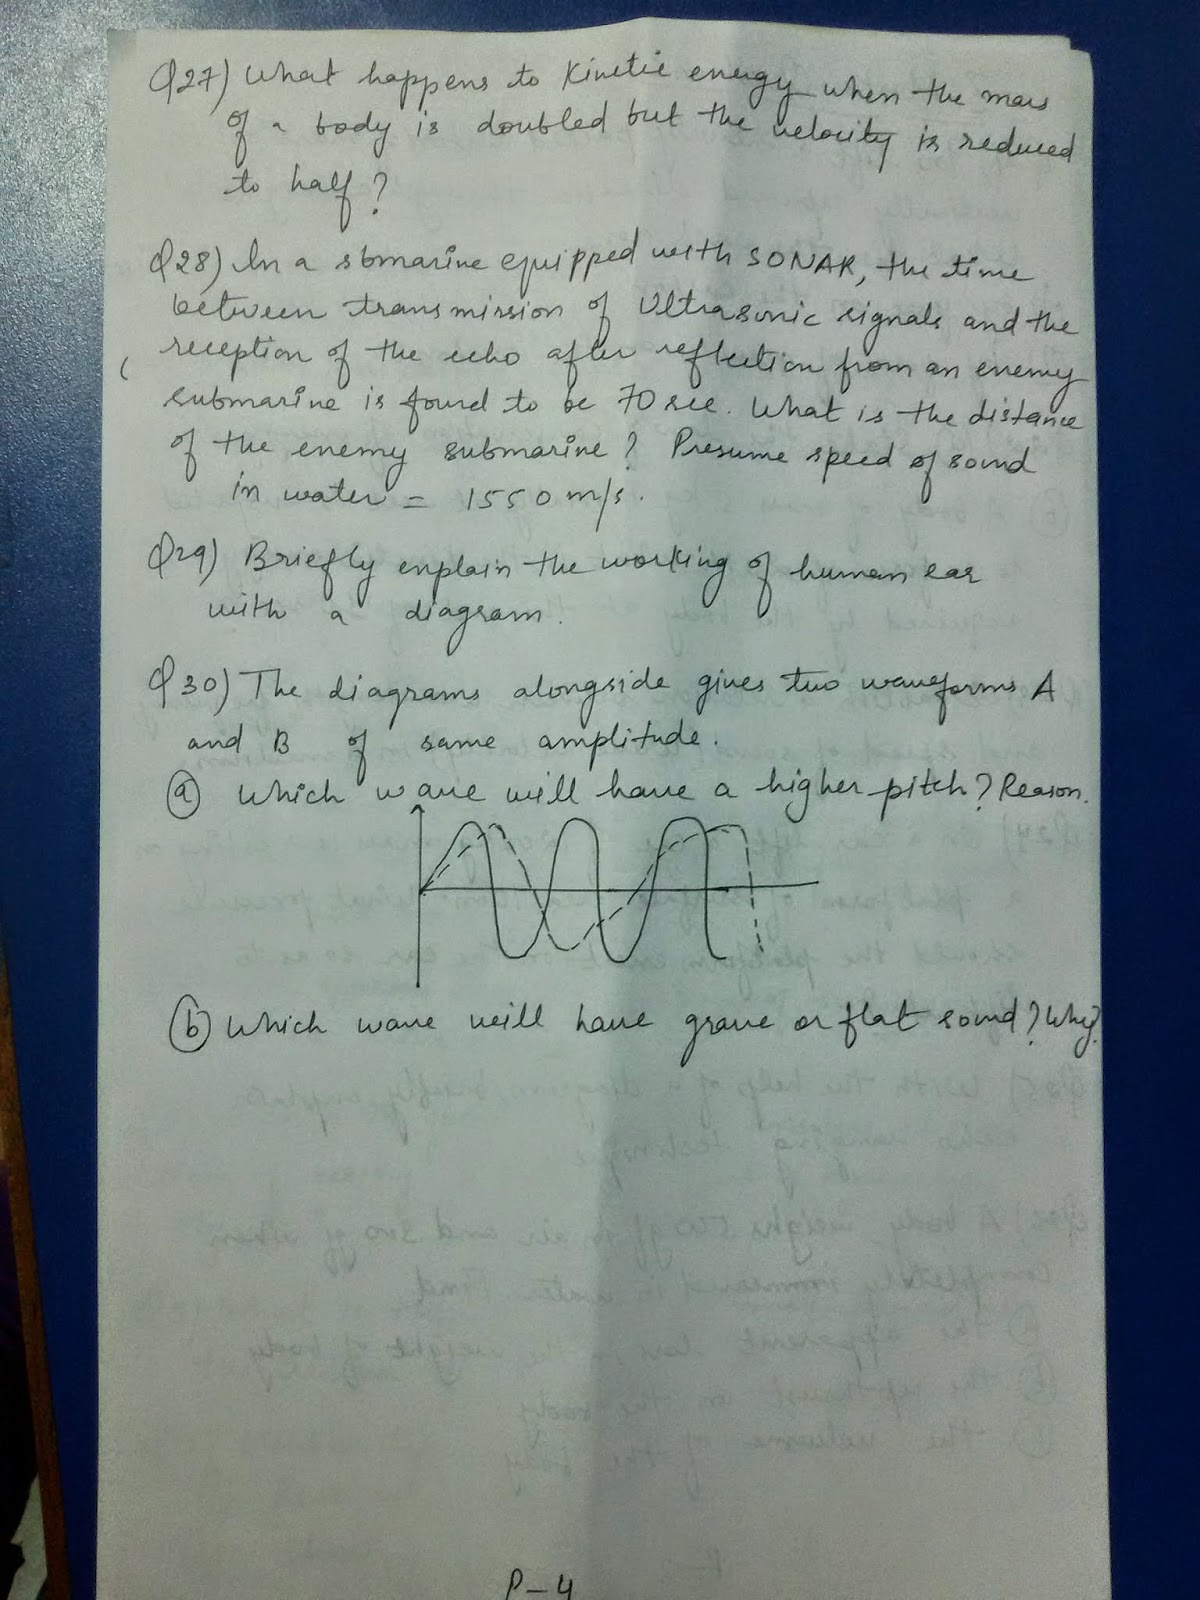 Q27) What happens to Kinetic energy when the mass
of a body is doubled but the velocity is reduced
to half?
Q28) In a sbmarine equipped with SONAR, the time
between transmission of Ultrasonic signals and the
reception of the echo after reflection from an enemy
submarine is found to be 70 sec. What is the distance
of the enemy submarine? Presume speed of sound
in water = 1550 m/s.
Q29) Briefly explain the working of human ear
with a diagram.
Q30) The diagrams alongside gives two waveforms A
and B of same amplitude.
(a) Which wave will have a higher pitch? Reason.
(b) Which wave will have grave or flat sound? Why?
P-4